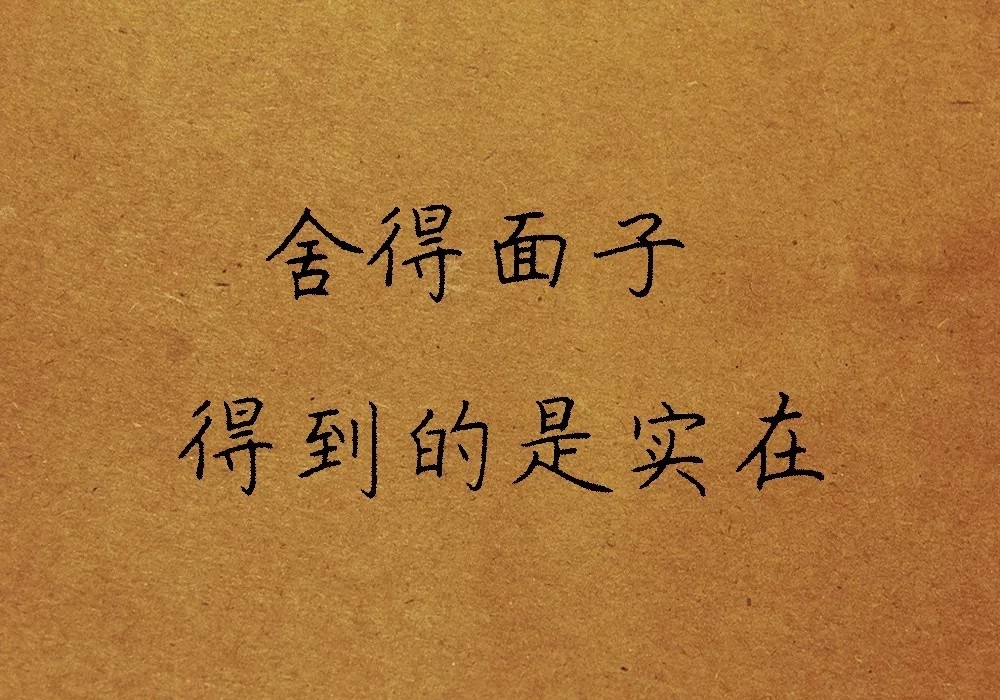 舍得面子
得到的是实在